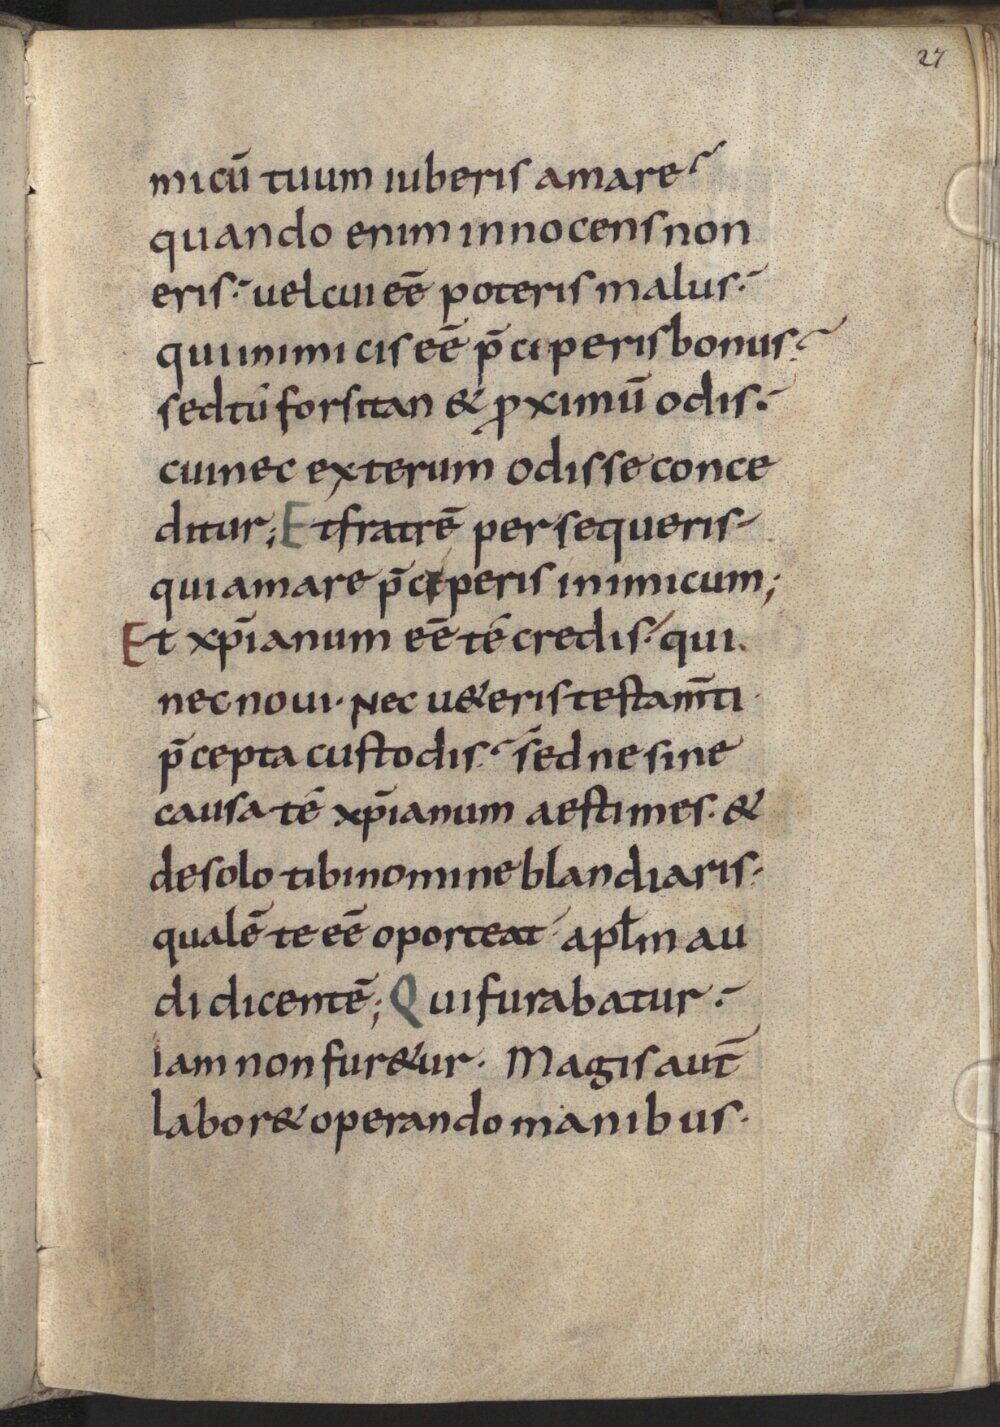 27
micū tuum iuberis amare
quando enim innocens non
eris· uel cui eē poteris malus·
qui inimicis eē p̄ciperis bonus·
sed tu forsitan & proximū odis·
cui nec exterum odisse conce
ditur; Et fratrē persequeris·
qui amare p̄ciperis inimicum;
Et xp̄ianum eē té credis· qui
nec noui· Nec u&eris testam̄ti
p̄cepta custodis· sed ne sine
causa té xp̄ianum aestimes· &
de solo tibi nomine blandiaris·
qualē te eē oporteat· apl̄m au
di dicentē; Qui furabatur·
Iam non fur&ur· Magis aut̄
labor& operando manibus·